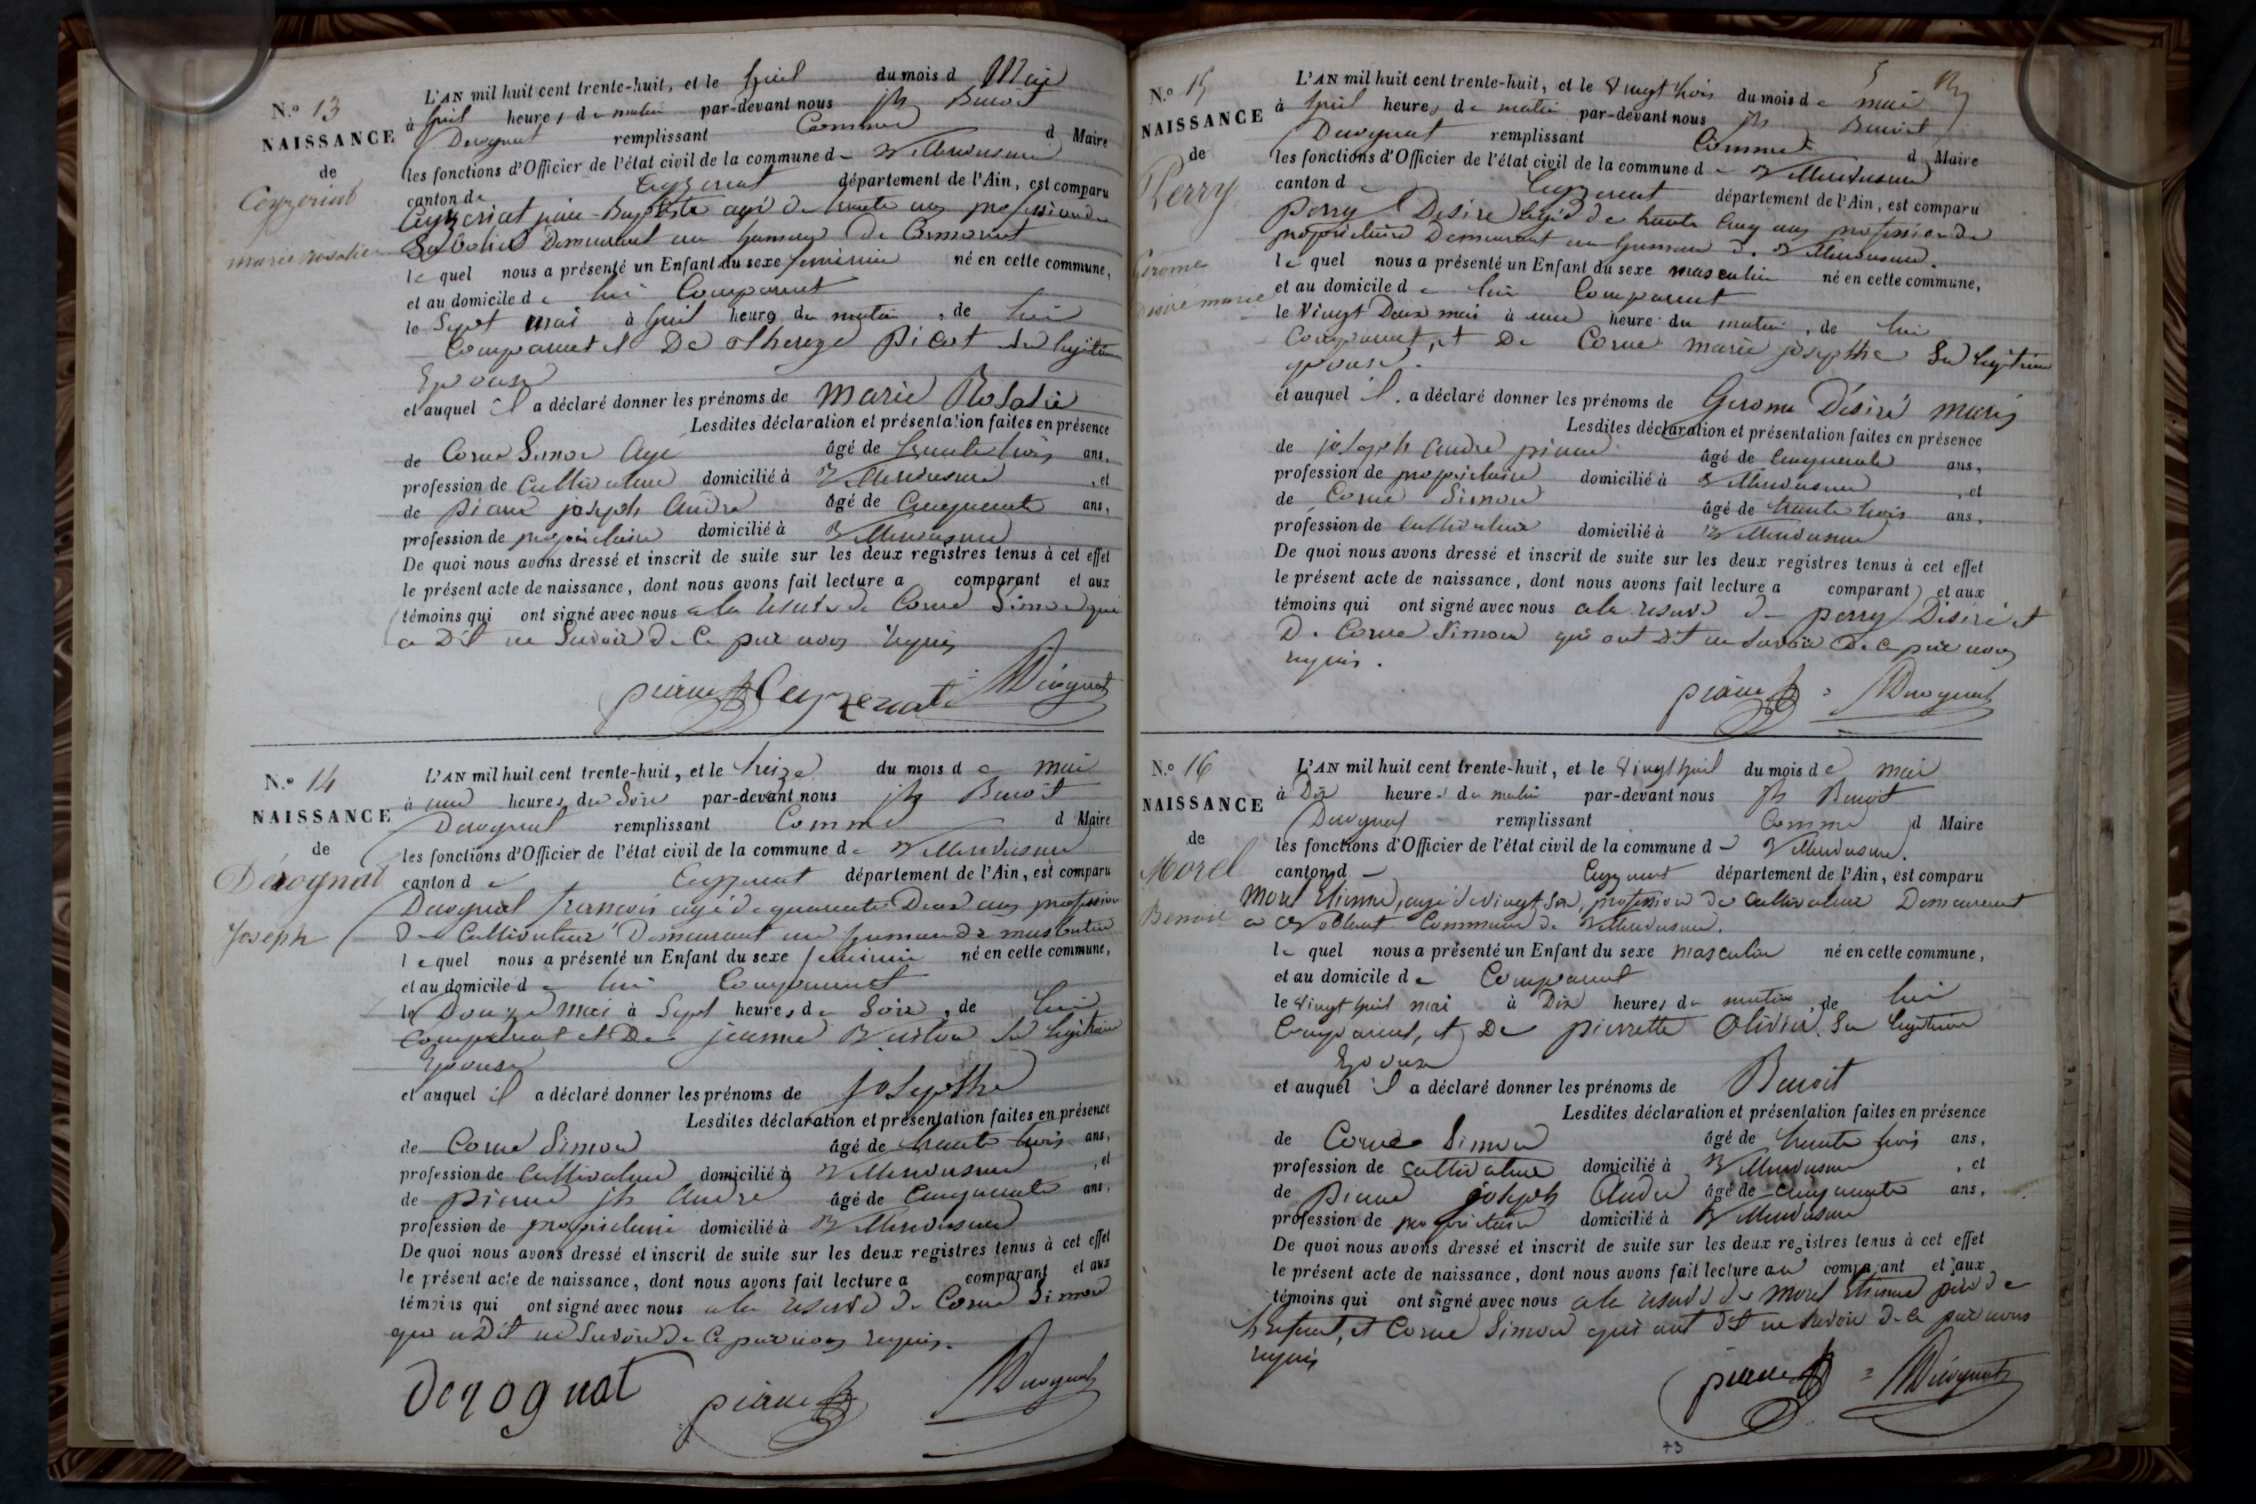 N.º 13
NAISSANCE
de
Ceyzeriat
marie rosalie
L'AN mil huit cent trente-huit, et le huit du mois d Mai
à huit heures du matin par-devant nous jh Benoit
Derognat remplissant Comme d Maire
les fonctions d'Officier de l'état civil de la commune de Villereversure
canton de Ceyzeriat département de l'Ain, est comparu
Ceyzeriat jean-Baptiste agé de trente ans profession de
Sabotier Demeurant au hameau de
le quel nous a présenté un Enfant du sexe feminin né en cette commune,
et au domicile de lui Comparant
le Sept mai à huit heures du matin, de lui
Comparant et De thereze Picot Sa legitime
Epouse
et auquel il a déclaré donner les prénoms de Marie Rosalie
Lesdites déclaration et présentation faites en présence
de Corne Simon Agé âgé de trente trois ans,
profession de Cultivateur domicilié à Villereversure, et
de pirane joseph André âgé de Cinquante ans,
profession de proprietaire domicilié à Villereversure
De quoi nous avons dressé et inscrit de suite sur les deux registres tenus à cet effet
le présent acte de naissance, dont nous avons fait lecture a comparant et aux
témoins qui ont signé avec nous a la reserve de Corne Simon qui
a Dit ne Savoir de Ce par nous requis
Ceyzeriat Derognat
N.º 14
NAISSANCE
de
Dérognat
Joseph
L'AN mil huit cent trente-huit, et le treize du mois de mai
à une heures du Soir par-devant nous jh Benoit
Derognat remplissant Comme d Maire
les fonctions d'Officier de l'état civil de la commune de Villereversure
canton de Ceyzeriat département de l'Ain, est comparu
Derognat francois agé de quarante Deux ans profession
De Cultivateur Demeurant au hameau de
le quel nous a présenté un Enfant du sexe feminin né en cette commune,
et au domicile de lui Comparant
le Douze mai à Sept heures du Soir, de lui
Comparant et De jeanne Sa legitime
Epouse
et auquel il a déclaré donner les prénoms de josephte
Lesdites déclaration et présentation faites en présence
de Corne Simon âgé de trente trois ans,
profession de Cultivateur domicilié à Villereversure, et
de pirane jh André âgé de Cinquante ans,
profession de proprietaire domicilié à Villereversure
De quoi nous avons dressé et inscrit de suite sur les deux registres tenus à cet effet
le présent acte de naissance, dont nous avons fait lecture a comparant et aux
témoins qui ont signé avec nous a la reserve de Corne Simon
qui a Dit ne Savoir de Ce par nous requis.
derognat Derognat
N.º 15
NAISSANCE
de
Perry
Gerome
Desiré marie
5
L'AN mil huit cent trente-huit, et le vingt trois du mois de mai
à huit heures du matin par-devant nous jh Benoit
Derognat remplissant Comme d Maire
les fonctions d'Officier de l'état civil de la commune de Villereversure
canton de Ceyzeriat département de l'Ain, est comparu
perry Desiré agé de trente Cinq ans profession de
proprietaire Demeurant au hameau de Villereversure.
le quel nous a présenté un Enfant du sexe masculin né en cette commune,
et au domicile de lui Comparant
le Vingt Deux mai à une heure du matin, de lui
Comparant, et De Corne marie josephte Sa legitime
epouse.
et auquel il a déclaré donner les prénoms de Gerome Désiré marie
Lesdites déclaration et présentation faites en présence
de joseph andré pirane âgé de Cinquante ans,
profession de proprietaire domicilié à Villereversure, et
de Corne Simon âgé de trente trois ans,
profession de Cultivateur domicilié à Villereversure
De quoi nous avons dressé et inscrit de suite sur les deux registres tenus à cet effet
le présent acte de naissance, dont nous avons fait lecture a comparant et aux
témoins qui ont signé avec nous a la reserve de perry Desiré et
De Corne Simon qui ont dit ne Savoir De Ce par nous
requis.
Derognat
N.º 16
NAISSANCE
de
Morel
Benoit
L'AN mil huit cent trente-huit, et le vingt huit du mois de mai
à Dix heures du matin par-devant nous jh Benoit
Derognat remplissant Comme d Maire
les fonctions d'Officier de l'état civil de la commune de Villereversure.
canton d Ceyzeriat département de l'Ain, est comparu
Morel Etienne, agé de vingt profession de Cultivateur Demeurant
a Commune de Villereversure.
le quel nous a présenté un Enfant du sexe masculin né en cette commune,
et au domicile de Comparant
le vingt huit mai à Dix heures du matin, de lui
Comparant, et De pierrette Olivier Sa legitime
Epouse
et auquel il a déclaré donner les prénoms de Benoit
Lesdites déclaration et présentation faites en présence
de Corne Simon âgé de trente trois ans,
profession de Cultivateur domicilié à Villereversure, et
de pirane joseph André âgé de Cinquante ans,
profession de proprietaire domicilié à Villereversure
De quoi nous avons dressé et inscrit de suite sur les deux registres tenus à cet effet
le présent acte de naissance, dont nous avons fait lecture au comparant et aux
témoins qui ont signé avec nous a la reserve de Morel Etienne pere de
l'enfant, et Corne Simon qui ont dit ne Savoir de Ce par nous
requis
Derognat
73